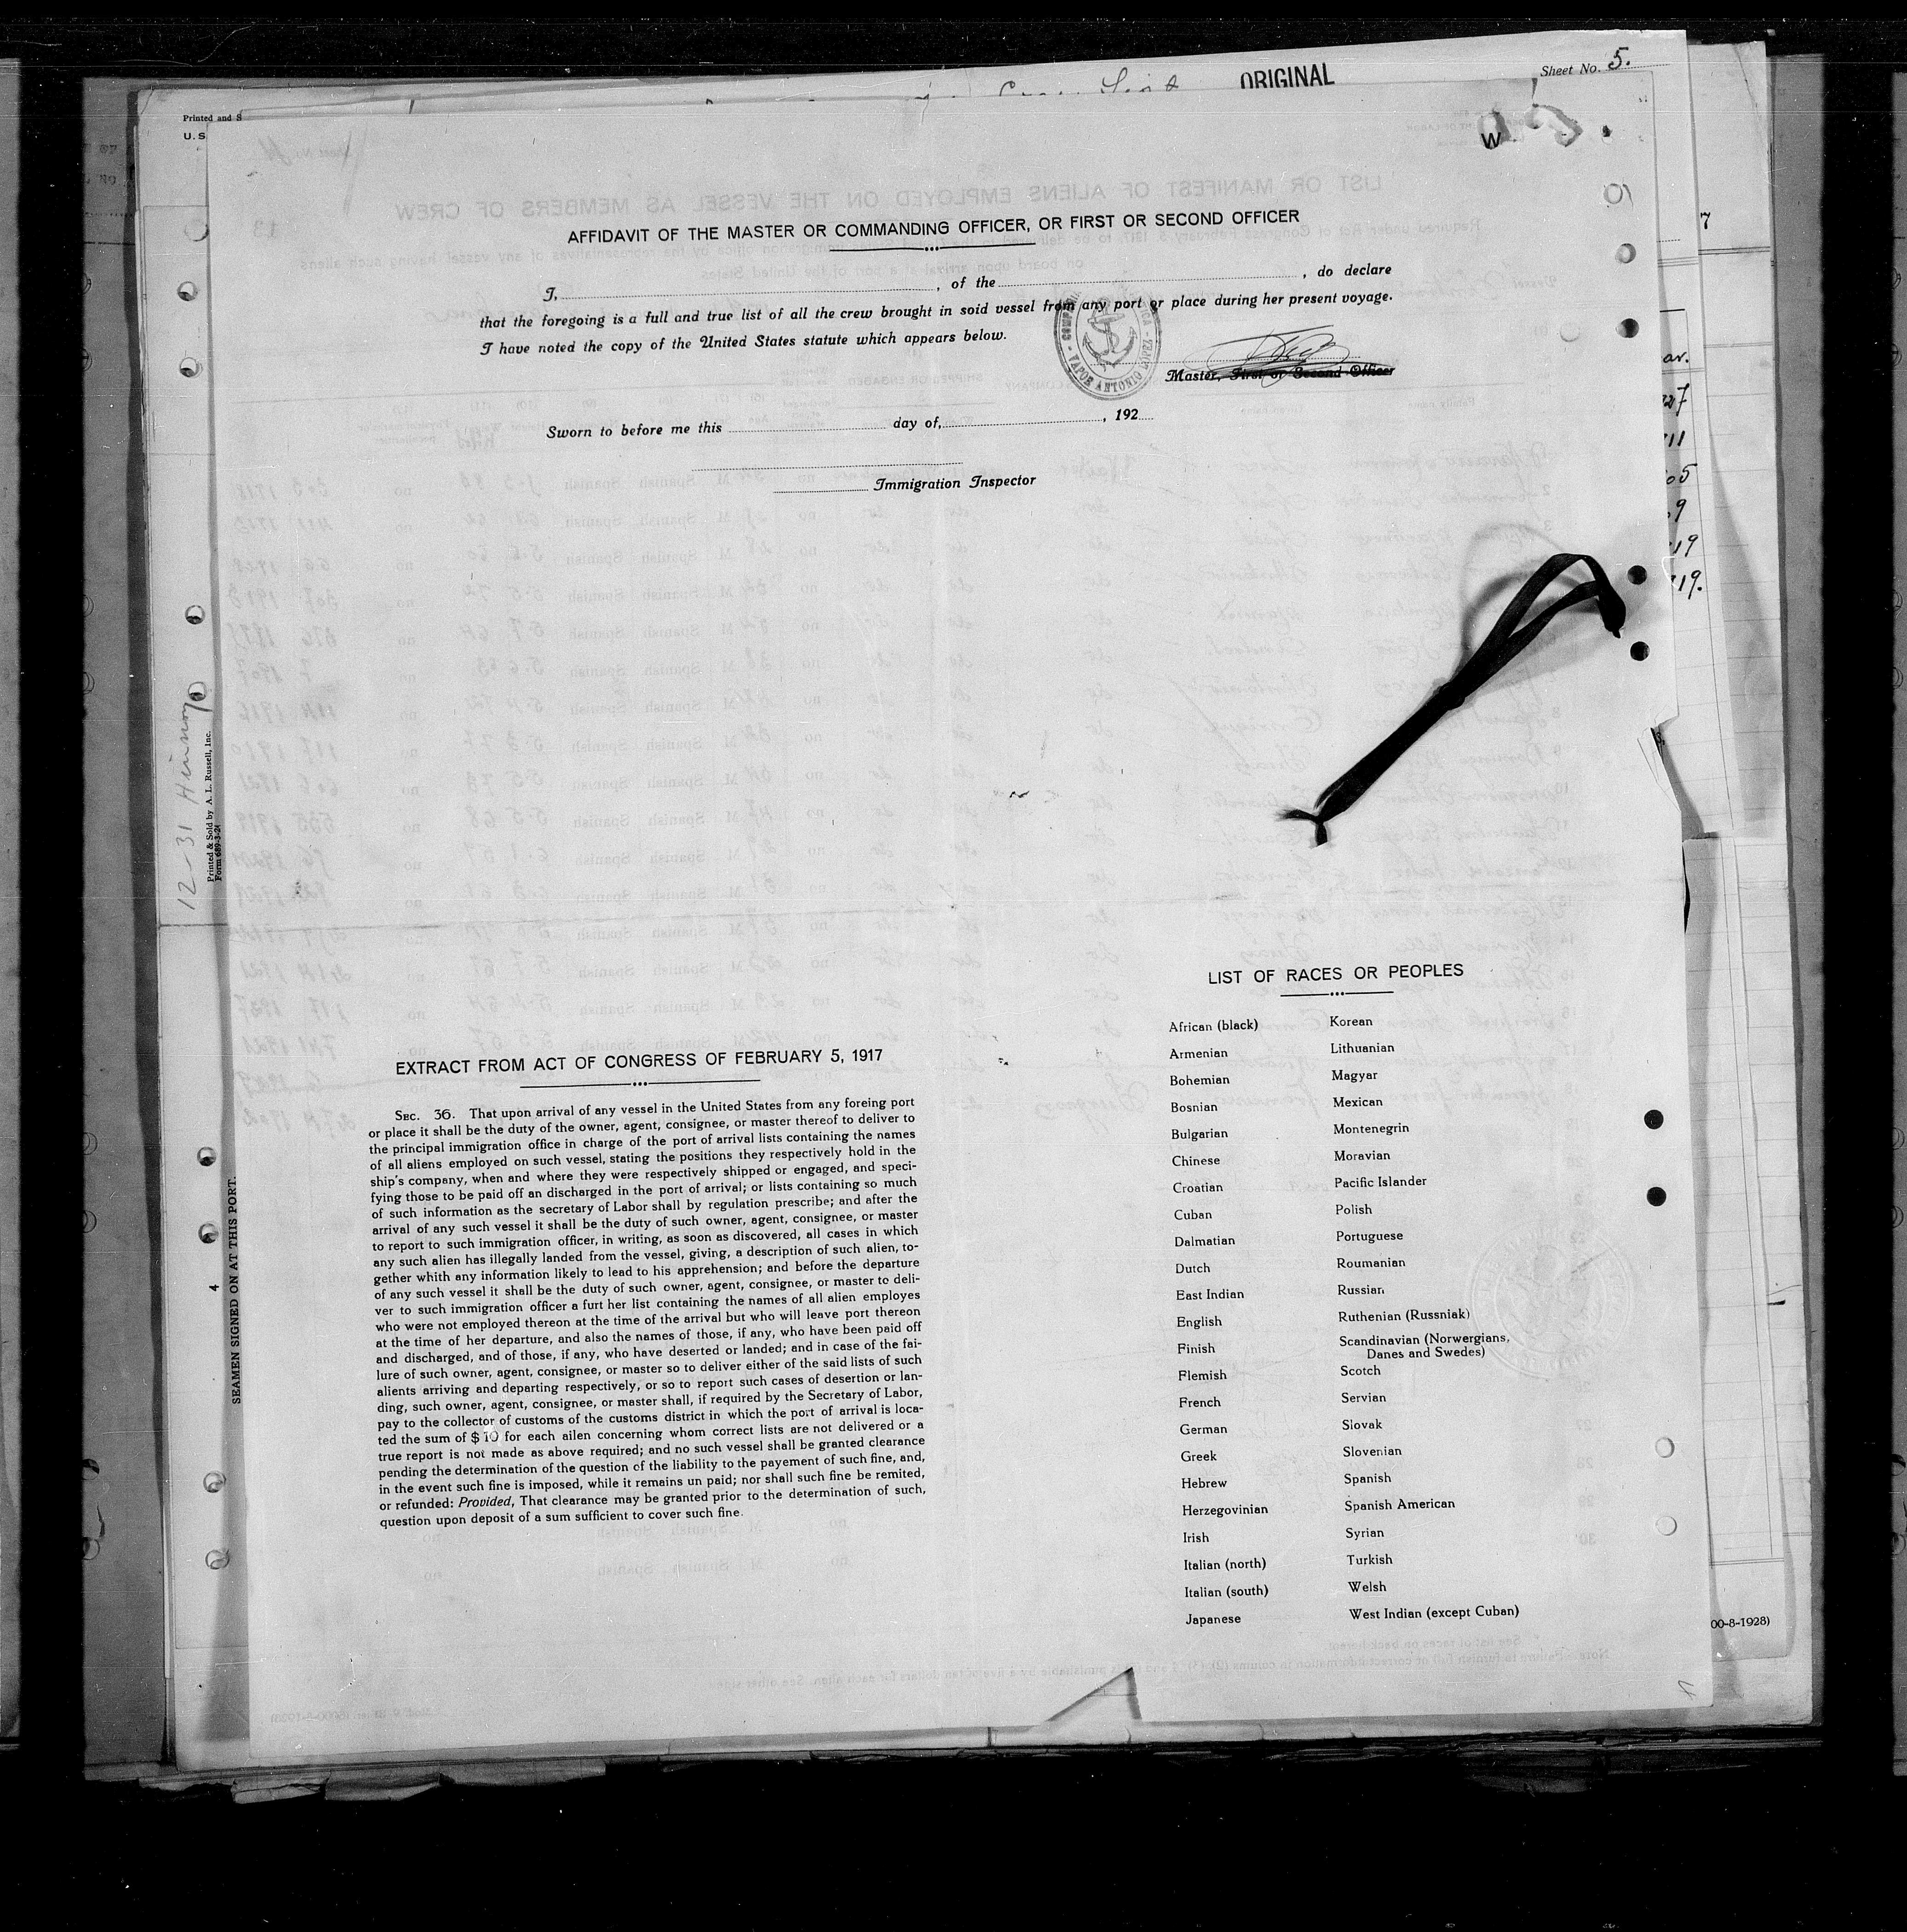 ORIGINAL
Sheet No. 5.
Printed and S
U. S
W
AFFIDAVIT OF THE MASTER OR COMMANDING OFFICER, OR FIRST OR SECOND OFFICER
I, , of the , do declare
that the foregoing is a full and true list of all the crew brought in soid vessel from any port or place during her present voyage.
I have noted the copy of the United States statute which appears below.
VAPOR ANTONIO LOPEZ
Master, First or Second Officer
Sworn to before me this day of, , 192
Immigration Inspector
7
ar.
19
19.
12-31
Printed & Sold by A. L. Russell, Inc.
Form 689-3-24
4
SEAMEN SIGNED ON AT THIS PORT.
EXTRACT FROM ACT OF CONGRESS OF FEBRUARY 5, 1917
SEC. 36. That upon arrival of any vessel in the United States from any foreing port
or place it shall be the duty of the owner, agent, consignee, or master thereof to deliver to
the principal immigration office in charge of the port of arrival lists containing the names
of all aliens employed on such vessel, stating the positions they respectively hold in the
ship's company, when and where they were respectively shipped or engaged, and speci-
fying those to be paid off an discharged in the port of arrival; or lists containing so much
of such information as the secretary of Labor shall by regulation prescribe; and after the
arrival of any such vessel it shall be the duty of such owner, agent, consignee, or master
to report to such immigration officer, in writing, as soon as discovered, all cases in which
any such alien has illegally landed from the vessel, giving, a description of such alien, to-
gether whith any information likely to lead to his apprehension; and before the departure
of any such vessel it shall be the duty of such owner, agent, consignee, or master to deli-
ver to such immigration officer a furt her list containing the names of all alien employes
who were not employed thereon at the time of the arrival but who will leave port thereon
at the time of her departure, and also the names of those, if any, who have been paid off
and discharged, and of those, if any, who have deserted or landed; and in case of the fai-
lure of such owner, agent, consignee, or master so to deliver either of the said lists of such
alients arriving and departing respectively, or so to report such cases of desertion or lan-
ding, such owner, agent, consignee, or master shall, if required by the Secretary of Labor,
pay to the collector of customs of the customs district in which the port of arrival is loca-
ted the sum of $ 10 for each ailen concerning whom correct lists are not delivered or a
true report is not made as above required; and no such vessel shall be granted clearance
pending the determination of the question of the liability to the payement of such fine, and,
in the event such fine is imposed, while it remains un paid; nor shall such fine be remited,
or refunded: Provided, That clearance may be granted prior to the determination of such,
question upon deposit of a sum sufficient to cover such fine.
LIST OF RACES OR PEOPLES
African (black)
Armenian
Bohemian
Bosnian
Bulgarian
Chinese
Croatian
Cuban
Dalmatian
Dutch
East Indian
English
Finish
Flemish
French
German
Greek
Hebrew
Herzegovinian
Irish
Italian (north)
Italian (south)
Japanese
Korean
Lithuanian
Magyar
Mexican
Montenegrin
Moravian
Pacific Islander
Polish
Portuguese
Roumanian
Russian
Ruthenian (Russniak)
Scandinavian (Norwergians,
Danes and Swedes)
Scotch
Servian
Slovak
Slovenian
Spanish
Spanish American
Syrian
Turkish
Welsh
West Indian (except Cuban)
00-8-1928)